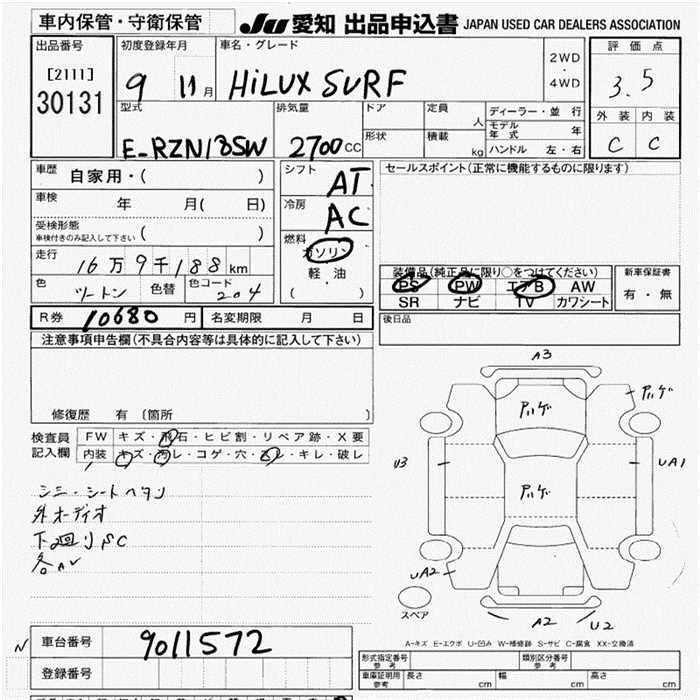 車内保管・守衛保管
JU 愛知 出品申込書 JAPAN USED CAR DEALERS ASSOCIATION
出品番号
[2111]
30131
初度登録年月
9 11月
車名・グレード
HiLUX SURF
2WD
・
4WD
評価点
3.5
外装 内装
C C
型式
E-RZN185W
排気量
2700cc
ドア
定員
人
形状
積載
kg
ディーラー・並行
モデル年式 年
ハンドル 左・右
車歴
自家用・( )
車検
年 月( 日)
受検形態
車検付きのみ記入して下さい ( )
走行
16万9千188km
色
ツートン
色替
色コード
204
シフト
AT
冷房
AC
燃料
ガソリン
軽・油
( )
セールスポイント(正常に機能するものに限ります)
装備品(純正品に限り○をつけてください)
PS PW エアB AW
SR ナビ TV カワシート
新車保証書
有・無
R券 10680 円
名変期限 月 日
後日品
注意事項申告欄(不具合内容等は具体的に記入して下さい)
修復歴 有 〔箇所 〕
検査員
記入欄
FW キズ・飛石・ヒビ割・リペア跡・X要
内装 キズ・汚レ・コゲ・穴・スレ・キレ・破レ
シミ・シートヘタリ
外オーディオ
下廻りSC
A3
アハゲ
アハゲ
アハゲ
U3
UA1
UA2
スペア
A2
U2
A-キズ E-エクボ U-凹み W-補修跡 S-サビ C-腐食 XX-交換済
車台番号
9011572
登録番号
形式指定番号
参考
類別区分番号
参考
車庫証明用
参考
長さ cm
幅 cm
高さ cm